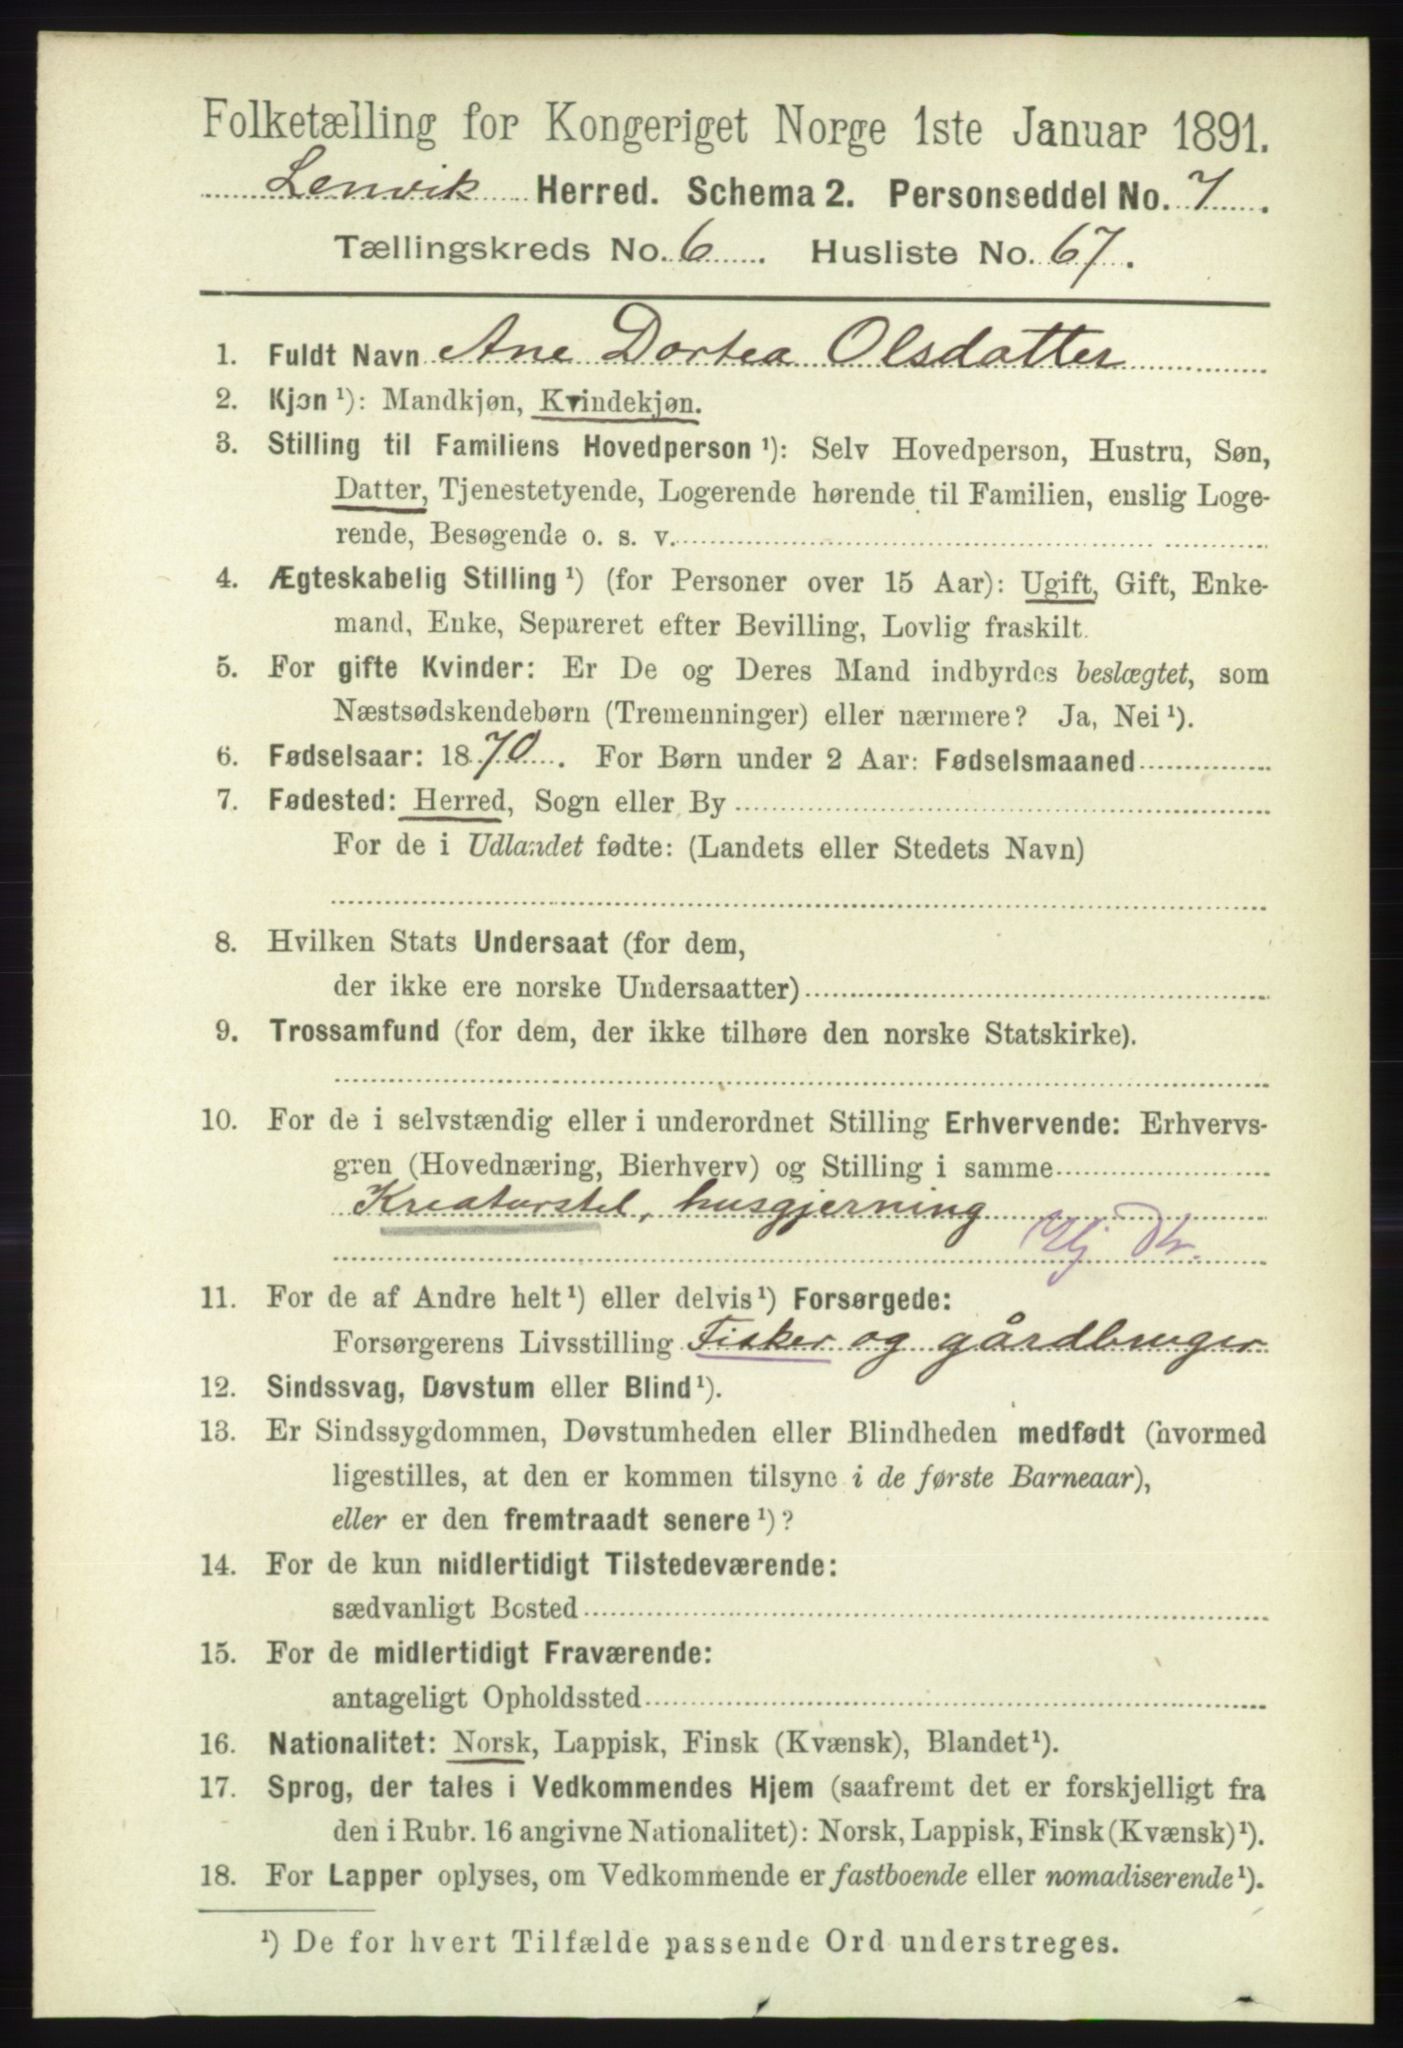 Folketælling for Kongeriget Norge 1ste Januar 1891.
Lenvik Herred. Schema 2. Personseddel No. 7.
Tællingskreds No. 6. Husliste No. 67.
1. Fuldt Navn Ane Dortea Olsdatter
2. Kjøn ¹): Mandkjøn, Kvindekjøn.
3. Stilling til Familiens Hovedperson ¹): Selv Hovedperson, Hustru, Søn,
Datter, Tjenestetyende, Logerende hørende til Familien, enslig Loge-
rende, Besøgende o. s. v.
4. Ægteskabelig Stilling ¹) (for Personer over 15 Aar): Ugift, Gift, Enke-
mand, Enke, Separeret efter Bevilling, Lovlig fraskilt.
5. For gifte Kvinder: Er De og Deres Mand indbyrdes beslægtet, som
Næstsødskendebørn (Tremenninger) eller nærmere? Ja, Nei ¹).
6. Fødselsaar: 1870. For Børn under 2 Aar: Fødselsmaaned
7. Fødested: Herred, Sogn eller By
For de i Udlandet fødte: (Landets eller Stedets Navn)
8. Hvilken Stats Undersaat (for dem,
der ikke ere norske Undersaatter)
9. Trossamfund (for dem, der ikke tilhøre den norske Statskirke).
10. For de i selvstændig eller i underordnet Stilling Erhvervende: Erhvervs-
gren (Hovednæring, Bierhverv) og Stilling i samme
Kreaturstel, husgjerning
11. For de af Andre helt ¹) eller delvis ¹) Forsørgede:
Forsørgerens Livsstilling Fisker og gårdbruger
12. Sindssvag, Døvstum eller Blind ¹).
13. Er Sindssygdommen, Døvstumheden eller Blindheden medfødt (hvormed
ligestilles, at den er kommen tilsyne i de første Barneaar),
eller er den fremtraadt senere ¹)?
14. For de kun midlertidigt Tilstedeværende:
sædvanligt Bosted
15. For de midlertidigt Fraværende:
antageligt Opholdssted
16. Nationalitet: Norsk, Lappisk, Finsk (Kvænsk), Blandet ¹).
17. Sprog, der tales i Vedkommendes Hjem (saafremt det er forskjelligt fra
den i Rubr. 16 angivne Nationalitet): Norsk, Lappisk, Finsk (Kvænsk) ¹).
18. For Lapper oplyses, om Vedkommende er fastboende eller nomadiserende ¹).
¹) De for hvert Tilfælde passende Ord understreges.